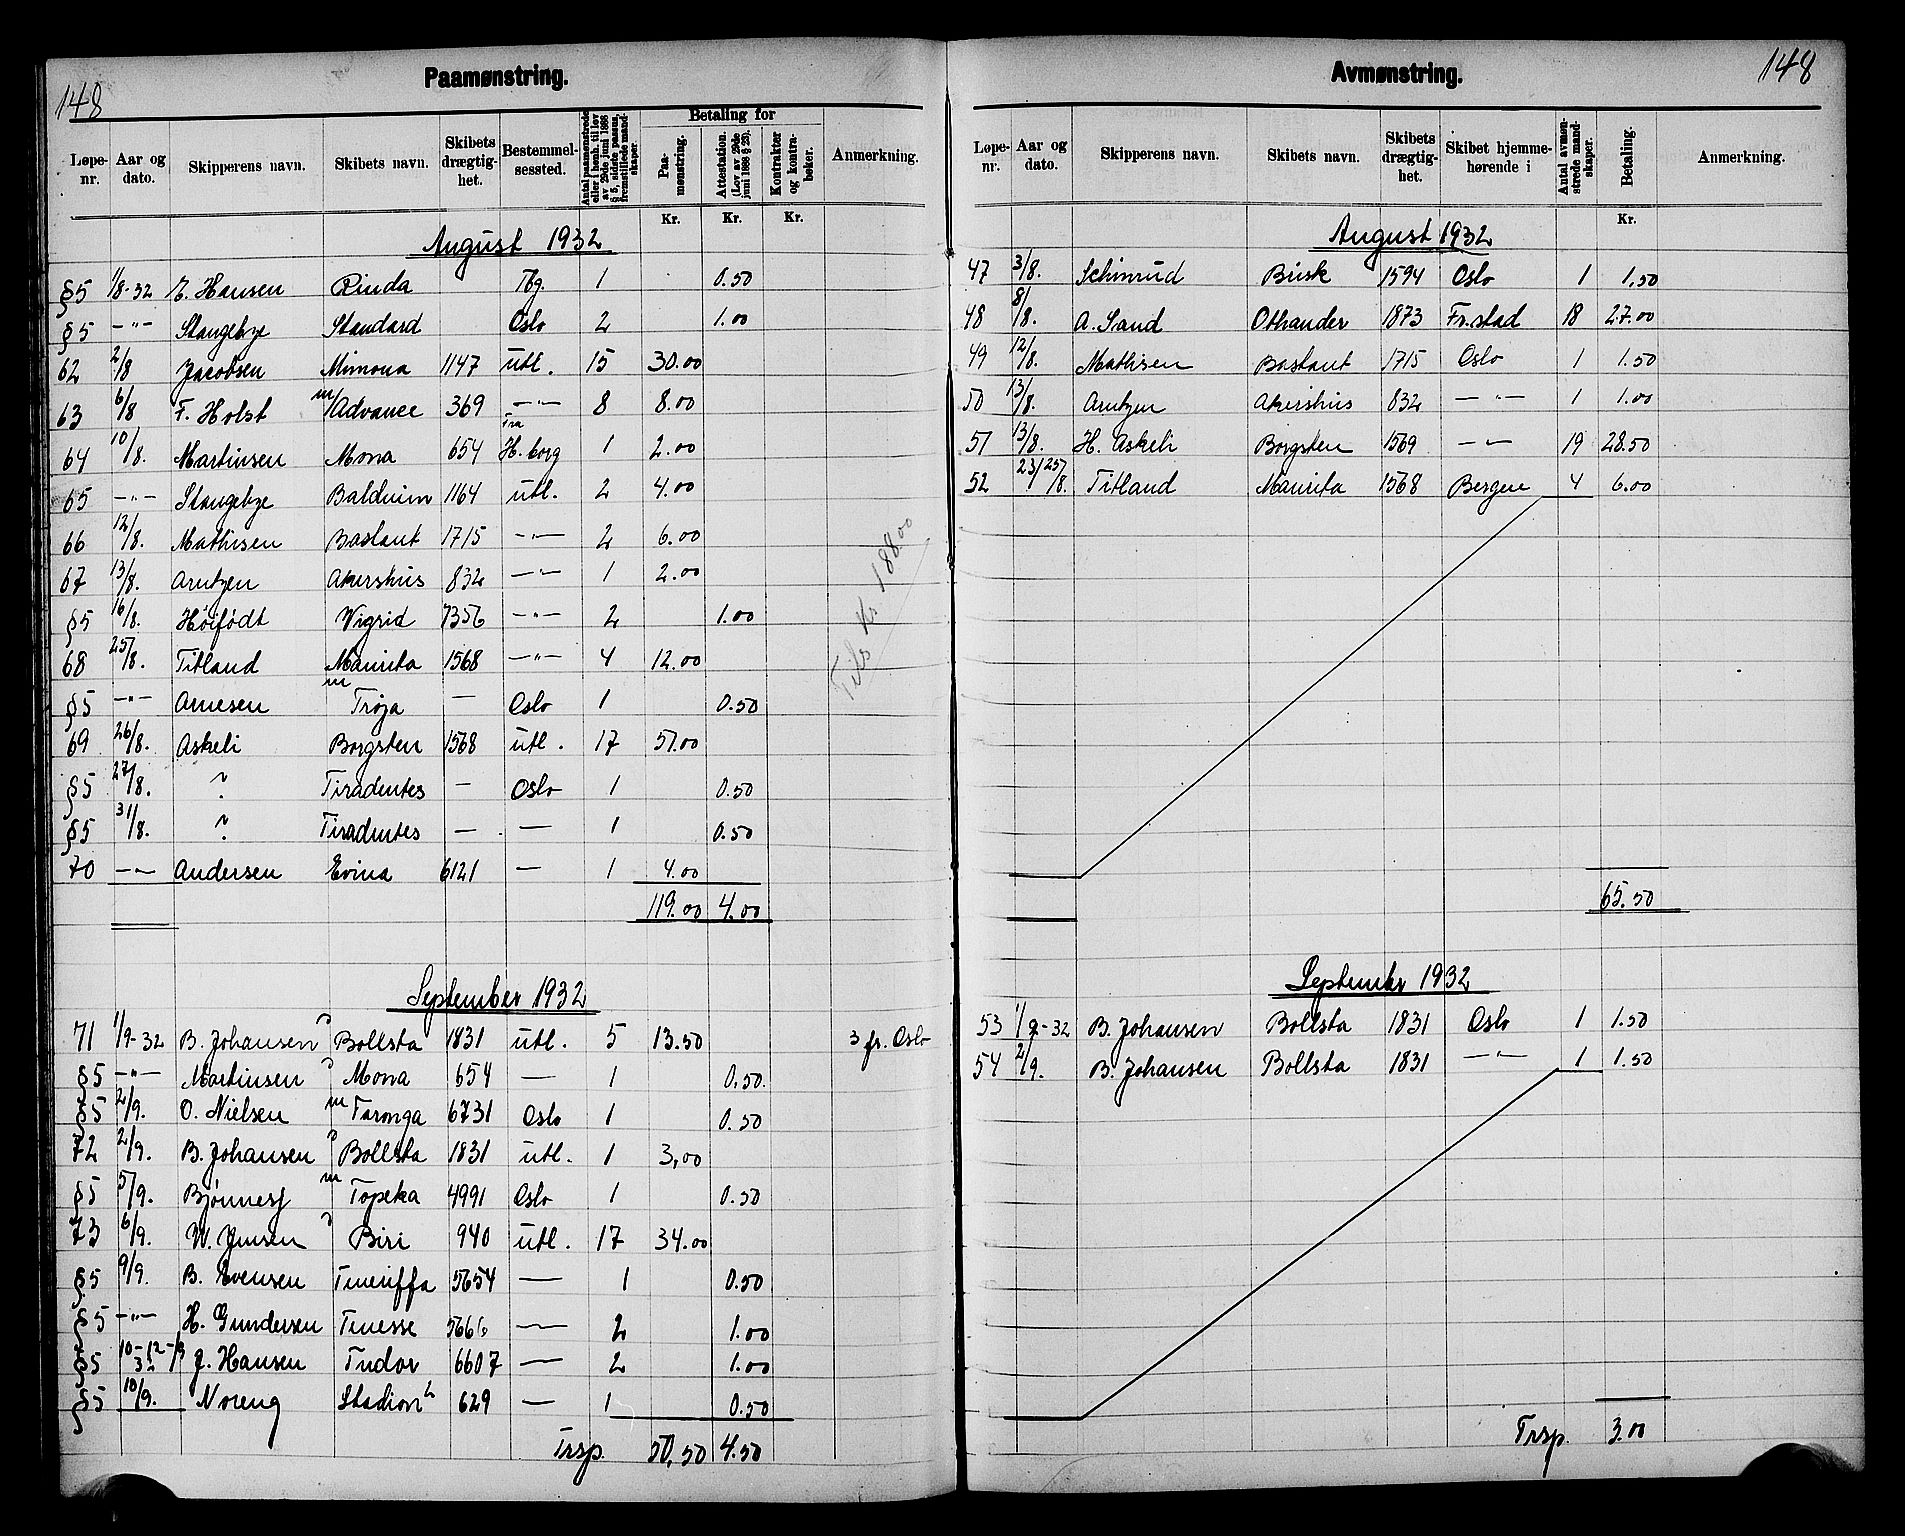 148
Paamønstring.
Løpe-nr. | Aar og dato. | Skipperens navn. | Skibets navn. | Skibets drægtig-het. | Bestemmel-sessted. | Antal paamønstrede eller i henh. til lov av 29de juni 1888 § 5, sidste passus, fremstillede mand-skaper. | Betaling for | Paa-mønstring. | Attestation. (Lov av 29de juni 1888 § 23). | Kontrakter og kontra-bøker. | Anmerkning.
Kr. | Kr. | Kr.
August 1932
§5 1/8-32 E. Hansen Rinda Tbg. 1 0.50
§5 -"- Stangebye Standard Oslo 2 1.00
62 2/8 Jacobsen Mimona 1147 utl. 15 30.00
63 6/8 F. Holst m/Advance 369 -"- 8 8.00
64 10/8. Martinsen Mona 654 fra H.borg 1 2.00
65 -"- Stangebye Balduin 1164 utl. 2 4.00
66 12/8. Mathisen Baslant 1715 -"- 2 6.00
67 13/8. Arntzen Akershus 832 -"- 1 2.00
§5 16/8. Høifødt Vigrid 7356 -"- 2 1.00
68 25/8. Titland Maurita 1568 -"- 4 12.00
§5 -"- Arnesen m Troja - Oslo 1 0.50
69 26/8. Askeli Borgsten 1568 utl. 17 51.00
§5 27/8. ? Tiradentes - Oslo 1 0.50
§5 31/8. ? Tiradentes - - 1 0.50
70 -"- Andersen Evina 6121 - 1 4.00
119.00 4.00
Tils Kr 188.00
September 1932
71 1/9-32 B. Johansen Bollsta 1831 utl. 5 13.50 3 fr. Oslo
§5 -"- Martinsen Mona 654 - 1 0.50
§5 2/9. O. Nielsen m Taronga 6731 Oslo 1 0.50
72 2/9. B. Johansen Bollsta 1831 utl. 1 3,00
§5 5/9. m Topeka 4991 Oslo 1 0.50
73 6/9. W. Jensen Biri 940 utl. 17 34.00
§5 9/9. B. Evensen Teneriffa 5654 - 1 0.50
§5 -"- H. Gundersen Tenesse 5666 - 2 1.00
§5 10-12-/9 32 J. Hansen Tudor 6607 - 2 1.00
§5 10/9. Noreng Stadion 629 - 1 0.50
Trsp. 50,50 4.50
148
Avmønstring.
Løpe-nr. | Aar og dato. | Skipperens navn. | Skibets navn. | Skibets drægtig-het. | Skibet hjemme-hørende i | Antal avmøn-strede mand-skaper. | Betaling. | Anmerkning.
Kr.
August 1932
47 3/8. Schinrud Busk 1594 Oslo 1 1,50
48 8/8. A. Sand Othander 1873 Fr.stad 18 27.00
49 12/8. Mathisen Baslant 1715 Oslo 1 1.50
50 13/8. Arntzen Akershus 832 -"- 1 1.00
51 13/8. H. Askeli Borgsten 1569 -"- 19 28.50
52 23/25/8. Titland Maurita 1568 Bergen 4 6.00
65.50
September 1932
53 1/9-32 B. Johansen Bollsta 1831 Oslo 1 1.50
54 2/9. B. Johansen Bollsta 1831 -"- 1 1.50
Trsp. 3.00